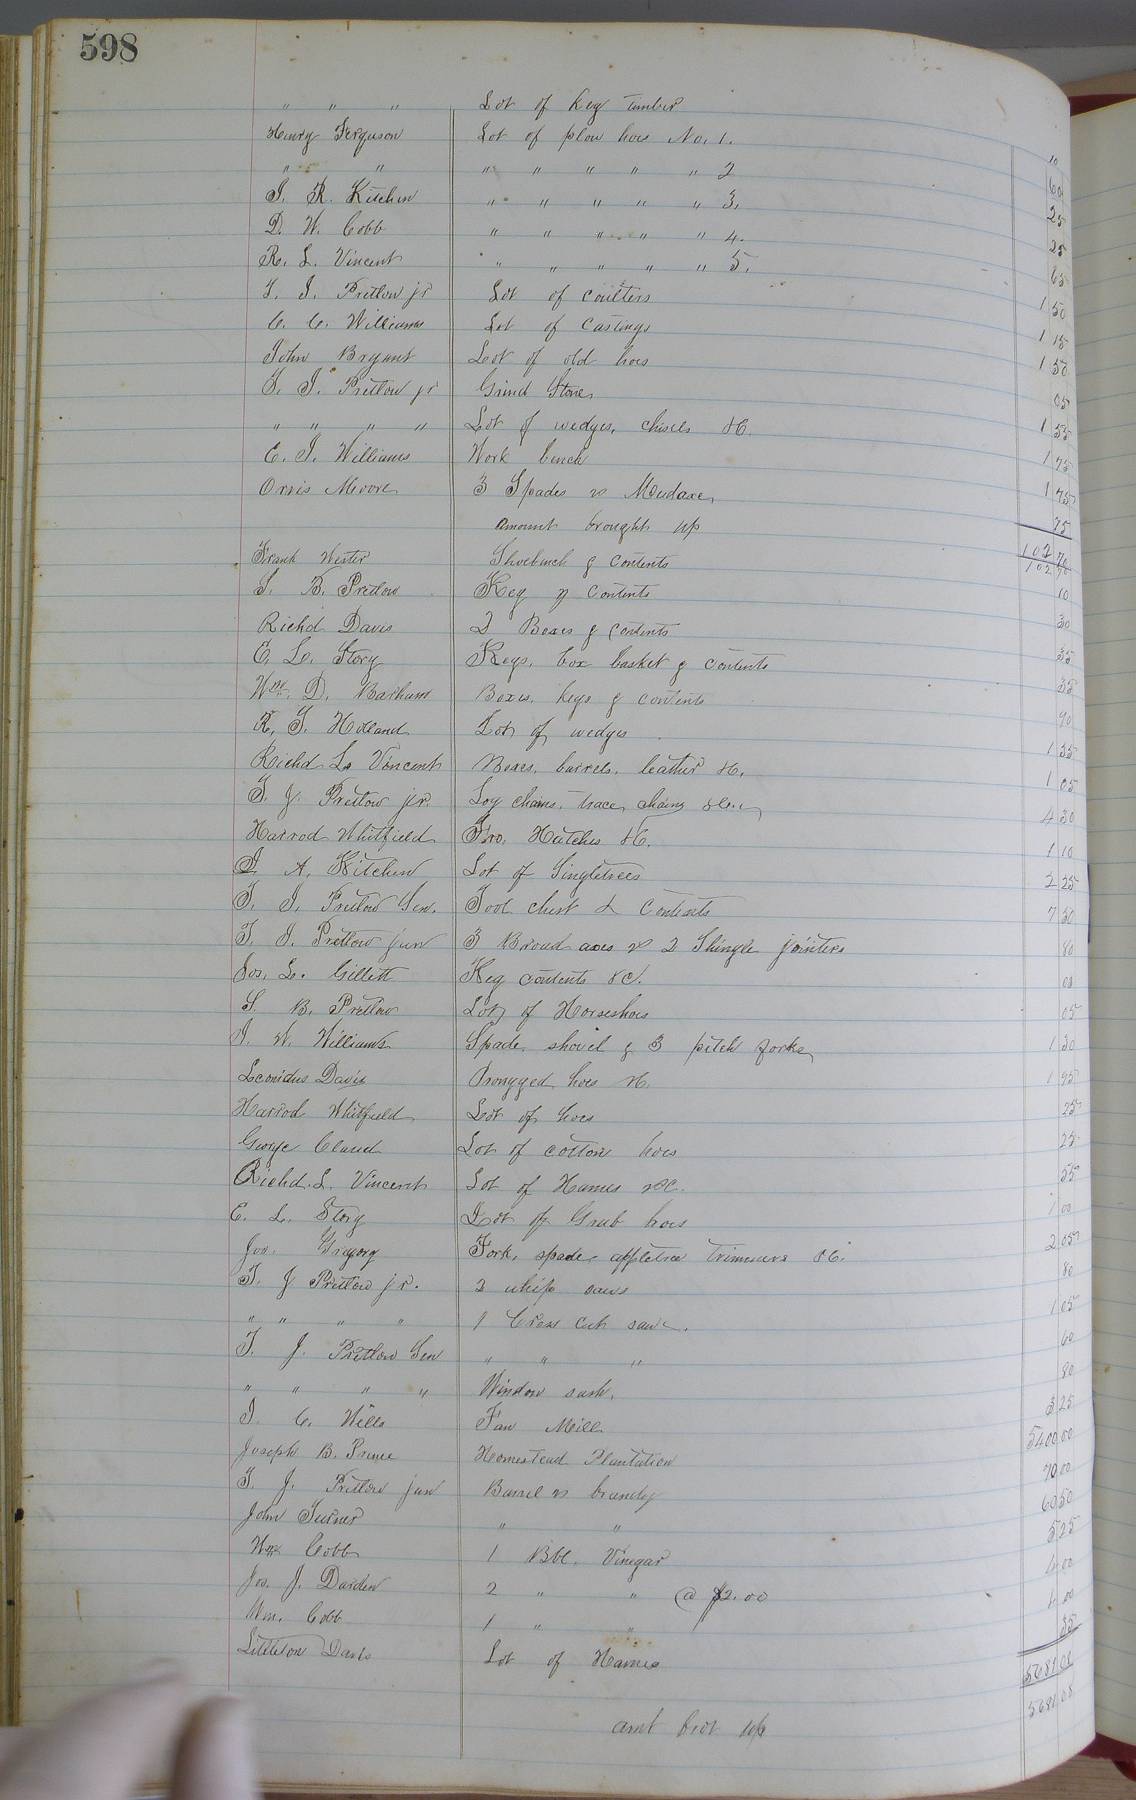 598
" " " Lot of Keg timber 10
Henry Ferguson Lot of plow hoes No. 1. 60
" " " " " " " 2 25
J. R. Kitchen " " " " " 3. 25
D. W. Cobb " " " " " 4. 65
R. L. Vincent " " " " " 5. 1 50
T. J. Pretlow jr Lot of coulters 1 15
C. C. Williams Lot of castings 1 50
John Bryant Lot of old hoes 05
T. J. Pretlow jr Grind Stone 1 55
" " " " Lot of wedges, chisels &C. 1 75
E. J. Williams Work bench 1 75
Orris Moore 3 Spades & 75
amount brought up 102 70
102 70
Frank Wester Shoebench & contents 10
S. B. Pretlow Keg & contents 30
Richd Davis 2 Boxes & contents 35
E. L. Story Kegs, box basket & contents 35
Wm. D. Barham Boxes, kegs & contents 90
R. T. Holland Lot of wedges 1 35
Richd L. Vincent Boxes, barrels, leather &c. 1 05
T. J. Pretlow jr. Log chains, trace chains &c. 4 30
Harrod Whitfield Fro, Hatches &C. 1 10
J. A. Kitchen Lot of Singletrees 2 25
T. J. Pretlow Sen. Tool chest & contents 7 30
T. J. Pretlow jun 3 Broad axes & 2 Shingle jointers 80
Jos. L. Gillett Keg contents &C.
S. B. Pretlow Lot of Horseshoes 05
J. W. Williams Spade, shovel & 3 pitch forks 1 30
Leonidus Davis Prongged hoes &c. 1 95
Harrod Whitfield Lot of hoes 25
George Claud Lot of cotton hoes 25
Richd. L. Vincent Lot of Hames &C. 55
E. L. Story Lot of Grub hoes 1 00
Jos. Gregory Fork, spade, appletree trimmers &C. 2 05
T. J. Pretlow jr. 2 whip saws 80
" " " " 1 Cross cut saw. 1 05
T. J. Pretlow Sen " " " 60
" " " " Window sash. 80
J. C. Wills Fan Mill 3 25
Joseph B. Prince Homestead Plantation 5400 00
T. J. Pretlow jun Barrel & brandy 70 00
John Turner " " 60 50
Wm Cobb 1 Bbl. Vinegar 5 25
Jos. J. Darden 2 " " @ $2.00 4 00
Wm. Cobb 1 " " 4 00
Littleton Davis Lot of Hames 35
5681 08
amt brot up 5681 08